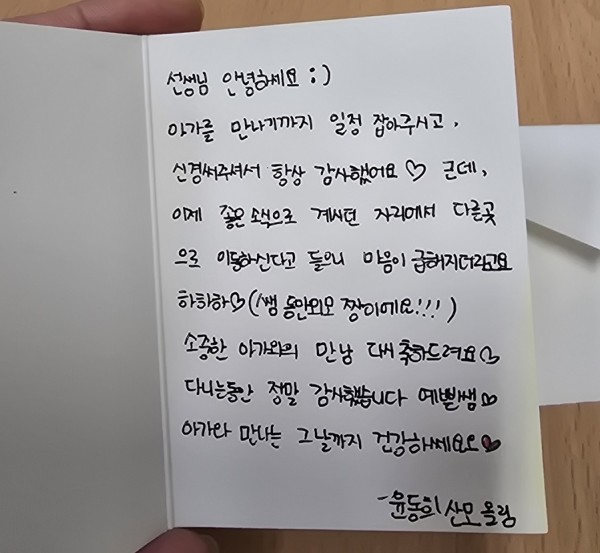 선생님 안녕하세요 :)
아가를 만나기까지 일정 잡아주시고,
신경써주셔서 항상 감사했어요♡ 근데,
이제 좋은 소식으로 계시던 자리에서 다른곳
으로 이동하신다고 들으니 마음이 급해지더라고요
하하하♡(쌤 동안외모 짱이에요!!!)
소중한 아가와의 만남 대 축하드려요♡
다니는동안 정말 감사했습니다 예쁜쌤♡
아가와 만나는 그날까지 건강하세요♡
-윤동희 산모 올림